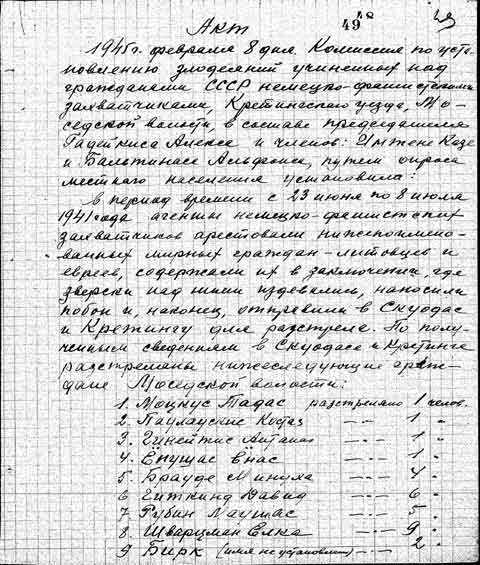 Акт
49
1945 г. февраля 8 дня. Комиссия по уста-
новлению злодеяний учиненных над
гражданами СССР немецко-фашистскими
захватчиками, Кретингского уезда, Мо-
седской волости, в составе председателя
Гадейкиса Алекса и членов:
и Балтинаса Альфонса, путем опроса
местного населения установила:
В период времени с 23 июня по 8 июля
1941 года агенты немецко-фашистских
захватчиков арестовали нижепоимено-
ванных мирных граждан-литовцев и
евреев, содержали их в заключении, где
зверски над ними издевались, наносили
побои и, наконец, отправили в Скуодас
и Кретингу для расстрела. По полу-
ченным сведениям в Скуодасе и Кретинге
расстреляны нижеследующие граж-
дане Моседской волости:
1. Моцкус Тадас расстреляно 1 челов.
2. Паулаускис Костаз —·— 1 "
3. Гинейтис Антанас —·— 1 "
4. Енушас Енас —·— 1 "
5. Брауде Минуха —·— 4 "
6 Гиткинд Давид —·— 6 "
7 Рубин Маушас —·— 5 "
8. Шварцман Елка —·— 9 "
9 Бирк (имя не установлено) —·— 2 "